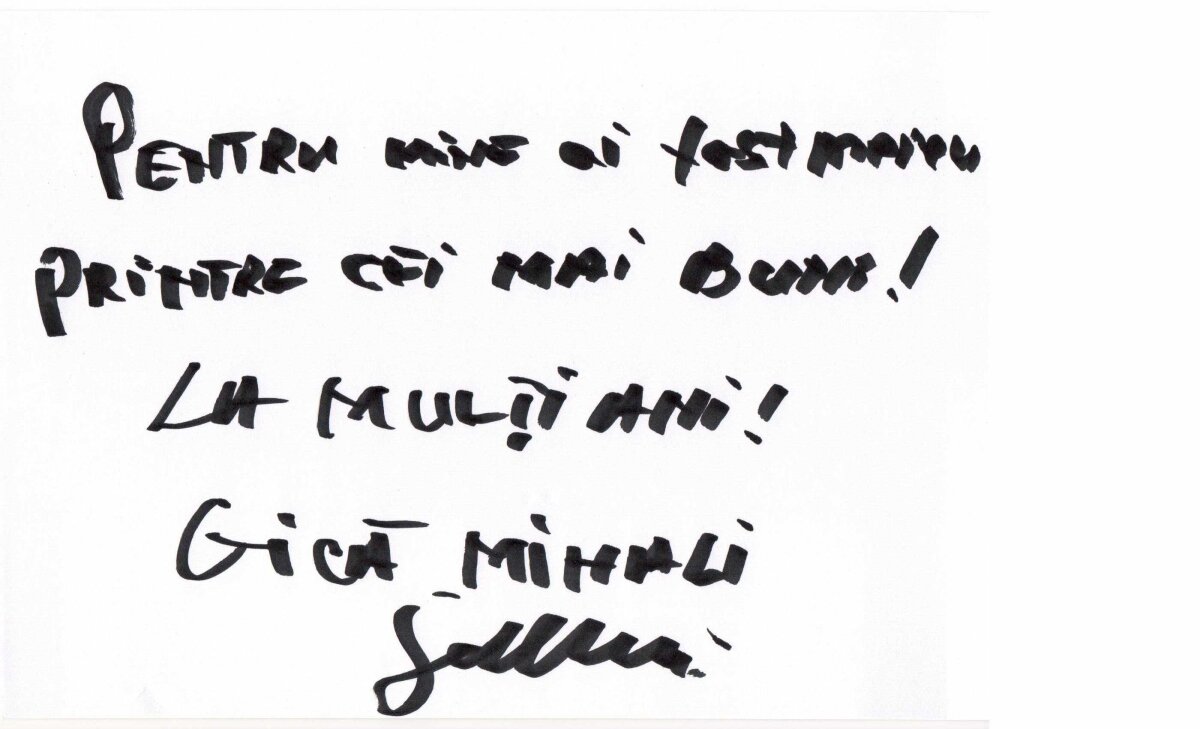 PENTRU mine ai fost mereu
PRINTRE CEI MAI BUNI!
LA MULȚI ANI!
GICĂ MIHALI